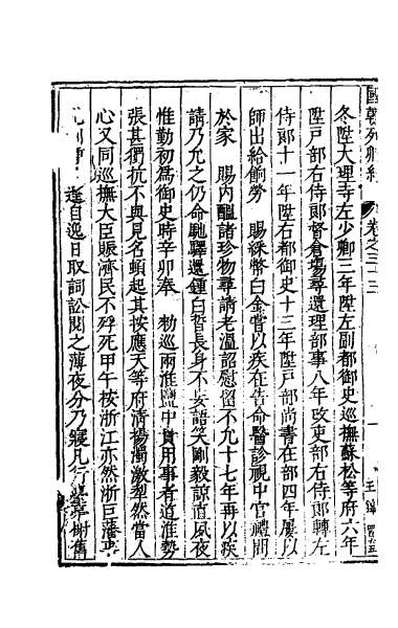 國朝列卿紀
卷之三十三
冬陞大理寺左少卿三年陞左副都御史巡撫蘇松等府六年
陞戶部右侍郎督倉場尋還理部事八年改吏部右侍郎轉左
侍郎十一年陞右都御史十三年陞戶部尚書在部四年屢以
師出給餉勞 賜綵幣白金嘗以疾在告命醫診視中官禮問
於家 賜內醞諸珍物尋請老溫詔慰留不允十七年再以疾
請乃允之仍命馳驛還鍾白皙長身不妄語笑剛毅諒直夙夜
惟勤初為御史時辛卯奉 勑巡兩淮鹽中貴用事者道淮勢
張甚獨抗不與見名頓起其按應天等府清揚濁激犁然當人
心又同巡撫大臣賑濟民不殍死甲午按浙江亦然浙巨藩
逵自逸日取詞訟閱之薄夜分乃寢凡行